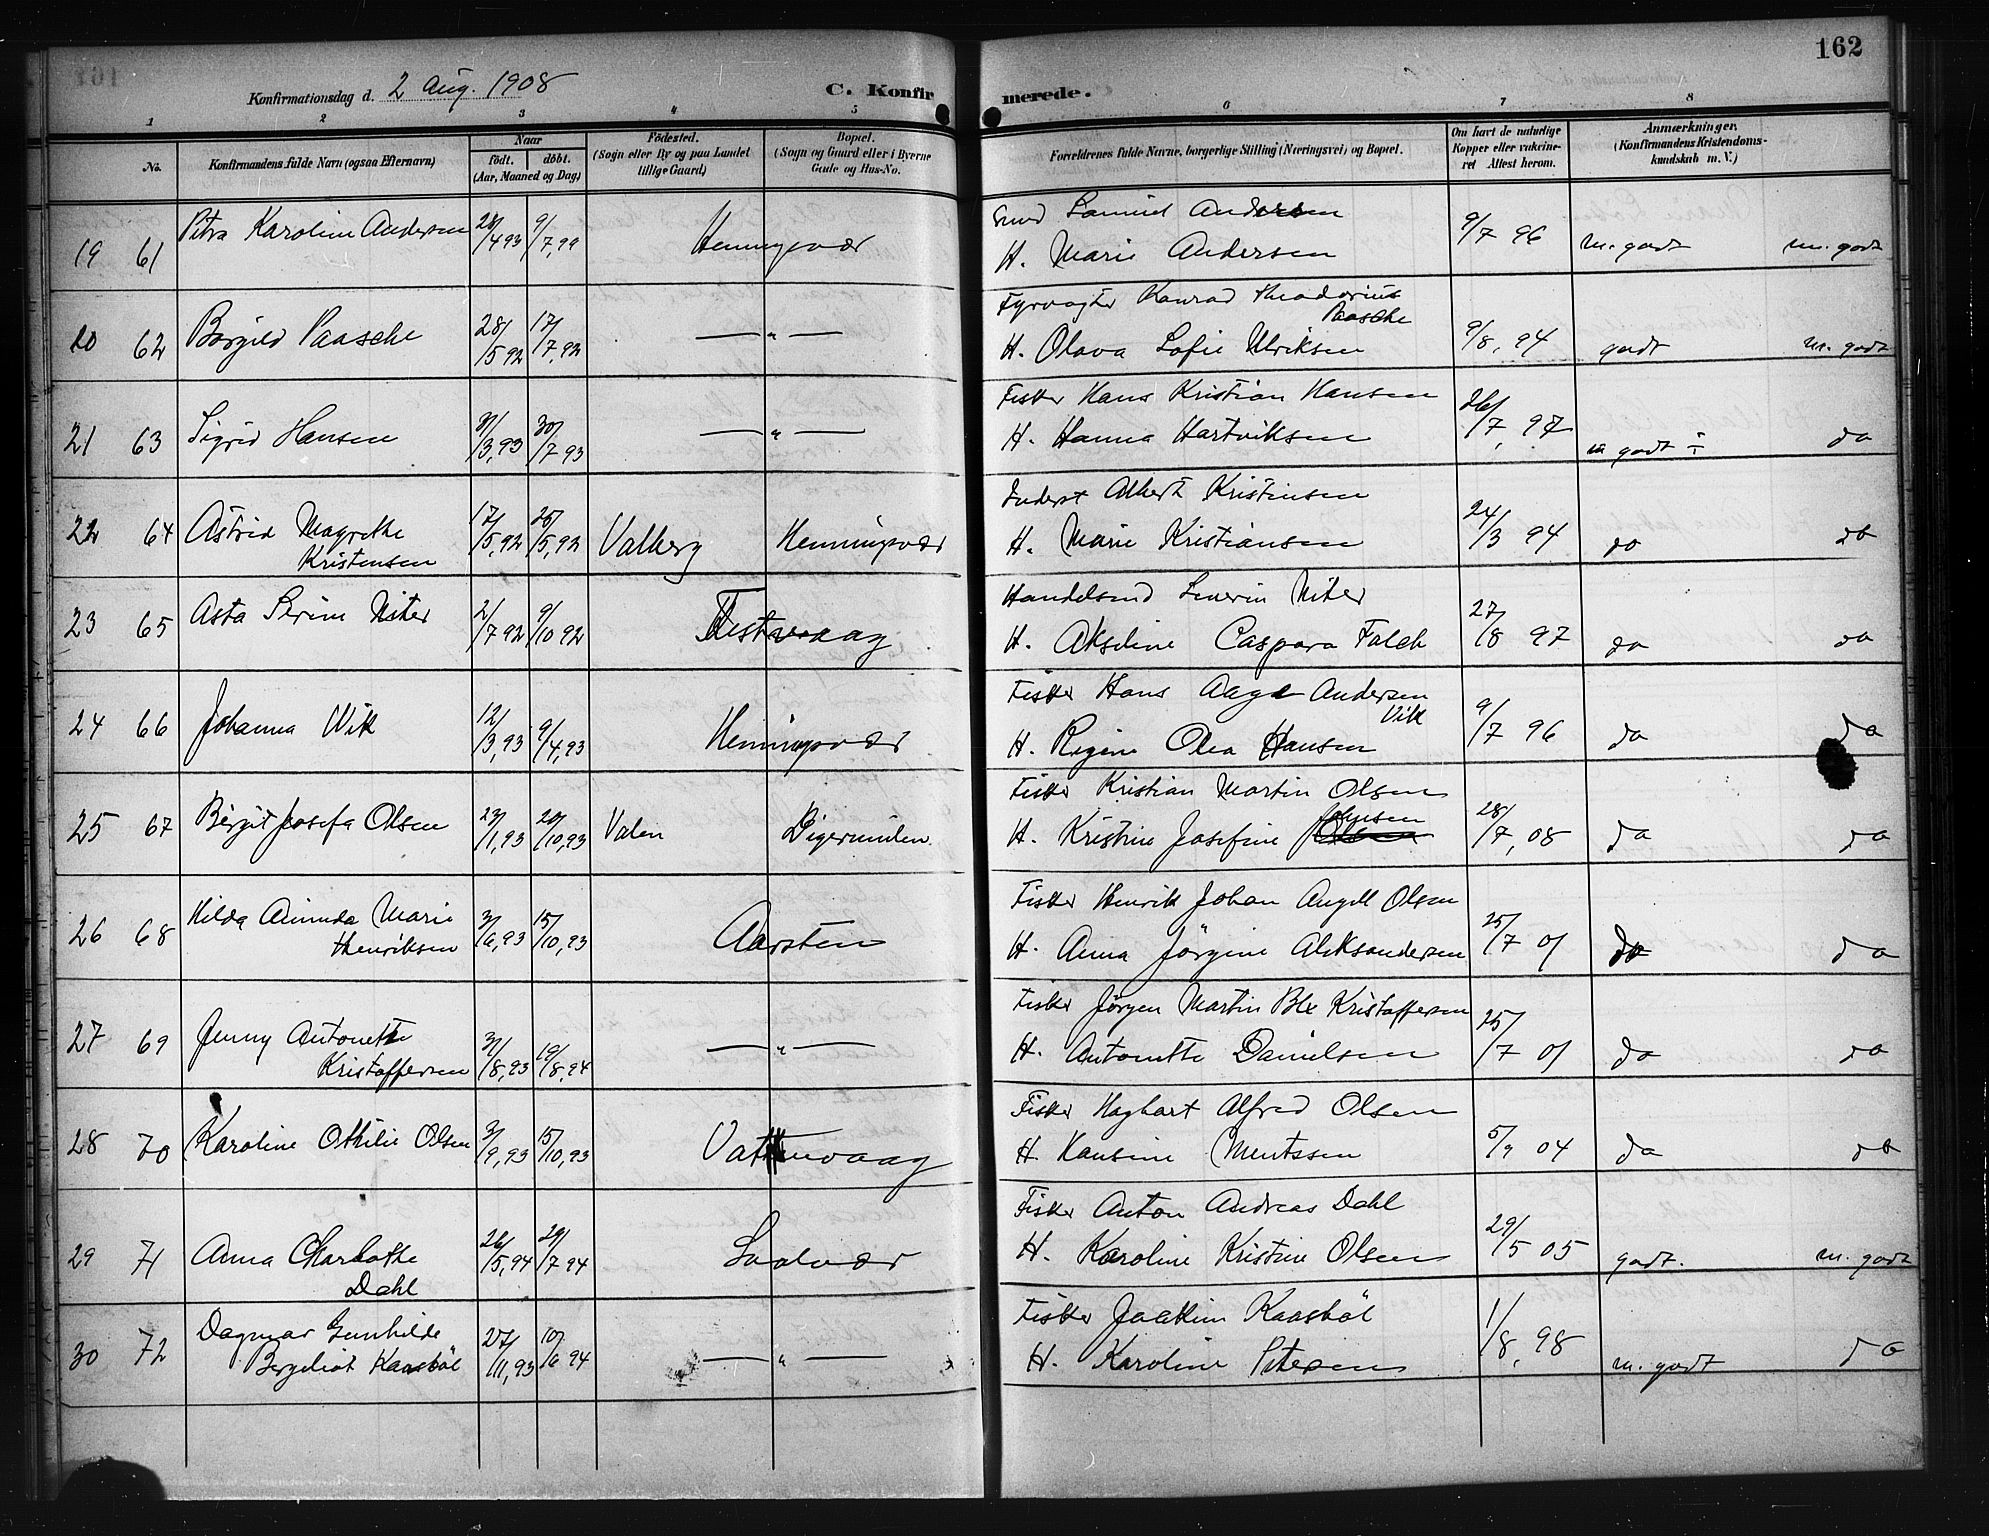 162
Konfirmationsdag d. 2 Aug. 1908
C. Konfirmerede.
1 2 3 4 5 6 7 8
No.
Konfirmandens fulde Navn (ogsaa Efternavn)
Naar
födt. döbt.
(Aar, Maaned og Dag)
Födested.
(Sogn eller By og paa Landet
tillige Gaard)
Bopæl.
(Sogn og Gaard eller i Byerne
Gade og Hus-No.
Forældrenes fulde Navne, borgerlige Stilling (Næringsvei) og Bopæl.
Om havt de naturlige
Kopper eller vakcine-
ret Attest herom.
Anmærkninger.
(Konfirmandens Kristendoms-
kundskab m. V.)
19 61 Petra Karoline Andersen 28/4 93 9/7, 99 Henningsvær
Samuel Andersen
H. Marie Andersen 9/7 96 m. godt m. godt
20 62 Borgild Paasche 28/5 92 17/7, 92 — " —
Fyrvogter Konrad Theodorius
Paasche
H. Olava Sofie Ulriksen 9/8, 94 godt m. godt
21 63 Sigrid Hansen 31/3, 93 30/7 93 — " —
Fisker Hans Kristian Hansen
H. Hanna Hartviksen 26/7, 97 m godt ÷ do
22 64 Astrid Magrethe
Kristensen 17/5, 92 25/5, 92 Valberg Henningsvær
Inderst Albert Kristensen
H. Marie Kristiansen 24/3 94 do do
23 65 Asta Serine Niter 2/7 92 9/10 92 Festvaag
Handelsmd Severin Niter
H. Akseline Caspara Falch 27/8 97 do do
24 66 Johanna Wik 12/3, 93 9/4, 93 Henningsvær
Fisker Hans Aage Andersen
Vik
H. Regine Olea Hansen 9/7 96 do do
25 67 Birgit Josefa Olsen 23/1, 93 20/10, 93 Valen Digermulen
Fisker Kristian Martin Olsen
H. Kristine Josefine Johnsen 28/7, 08 do do
26 68 Hilda Aminda Marie
Henriksen 3/6, 93 15/10, 93 Aarsten
Fisker Henrik Johan Angell Olsen
H. Anna Jörgine Aleksandersen 25/7 01 do do
27 69 Jenny Antonette
Kristoffersen 31/8, 93 19/8, 94 — " —
Fisker Jörgen Martin Blx Kristoffersen
H. Antonette Danielsen 25/7 01 do do
28 70 Karoline Othilie Olsen 3/9, 93 15/10, 93 Vattenvaag
Fisker Haghart Alfred Olsen
H. Hansine Mentssen 5/9 04 do do
29 71 Anna Charlothe
Dahl 26/5, 94 29/7 94 Svolvær
Fisker Anton Andreas Dahl
H. Karoline Kristine Olsen 29/5 05 godt. m. godt
30 72 Dagmar Gunhilde
Bergeliot Kaasböl 27/11, 93 10/6 94 — " —
Fisker Joakim Kaasböl
H. Karoline Petersen 1/8, 98 m. godt do